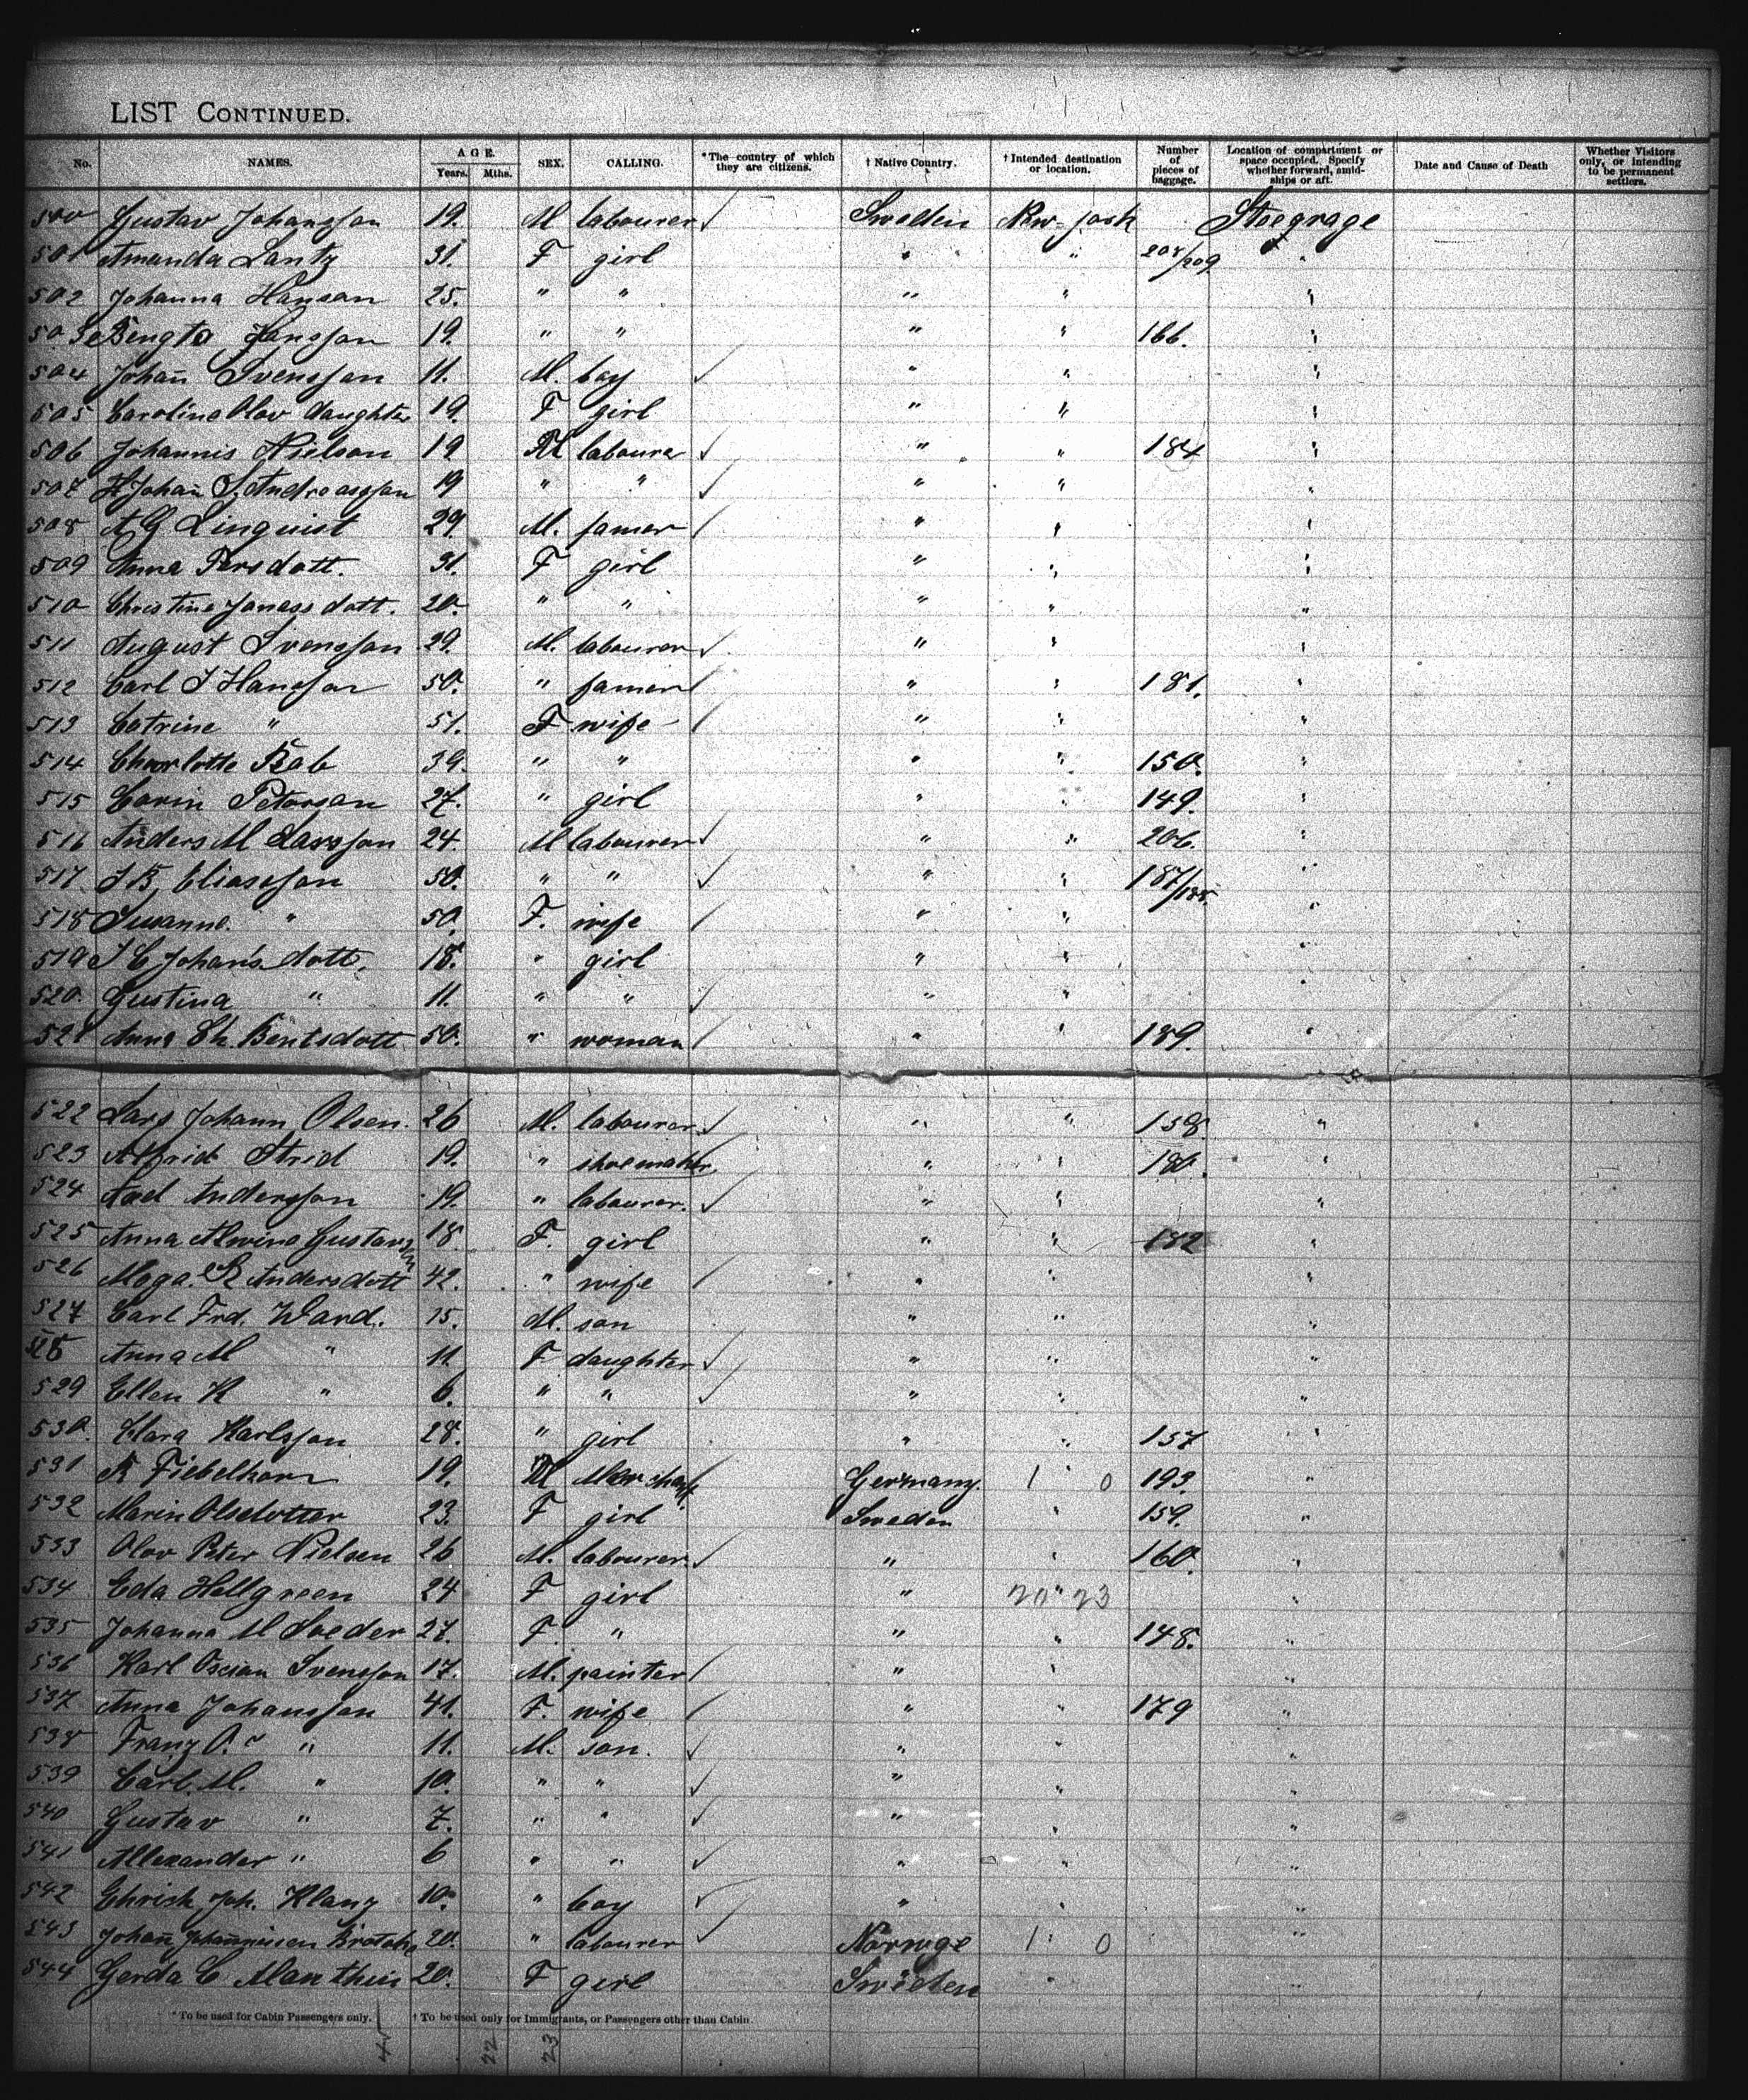 LIST CONTINUED.
No. NAMES. AGE. Years. Mths. SEX. CALLING. *The country of which they are citizens. † Native Country. † Intended destination or location. Number of pieces of baggage. Location of compartment or space occupied. Specify whether forward, amidships or aft. Date and Cause of Death Whether Visitors only, or intending to be permanent settlers.
500 Gustav Johansson 19. M labourer Sweden New-York Steegrage
501 Amanda Lantz 31. F girl " " 208/209 "
502 Johanna Hansan 25. " " " " "
503 Bengta Hansson 19. " " " " 166. "
504 Johañ Svensson 11. M. boy " " "
505 Carolina Olav daughter 19. F girl " " "
506 Johannis Nielson 19 M labourer " " 184 "
507 Johañ S. Andreasson 19 " " " " "
508 A G Linquist 29. M. famer " " "
509 Anna Persdott. 31. F girl " " "
510 Christine Jonass dott. 20. " " " " "
511 August Svensson 29. M. labourer " " "
512 Carl J Hansson 50. " famer " " 181. "
513 Catrine " 51. F wife " " "
514 Charlotte Rab 39. " " " " 150. "
515 Carin Peterson 27. " girl " " 149. "
516 Anders M Larsson 24. M labourer " " 206. "
517 J B, Eliasson 50. " " " " 187/188. "
518 Susanne. " 50. F. wife " " "
519 J C Johans dott. 18. " girl " " "
520. Gustina " 11. " " " " "
521 Anna Ch. Bentsdott 50. " woman " " 189. "
522 Lars Johann Olsen. 26 M. labourer " " 158. "
523 Alfrid Strid 19. " shoemaker " " 180. "
524 Axel Andersson 19. " labourer. " " "
525 Anna Alwine Gustavs 18 F. girl " " 182 "
526 Andersdott 42. " wife " " "
527 Carl Frd. Ward. 15. M. son " " "
528 Anna M " 11. F daughter " " "
529 Ellen K " 6. " " " " "
530. Clara Karlsson 28. " girl " " 157 "
531 Fiebelkorn 19. M Merchant Germany. 1 " 0 193. "
532 Marin Olsdotter 23. F girl Sweden " 159. "
533 Olav Peter Nielsen 26 M. labourer. " " 160. "
534 Eda Hellgreen 24 F girl " 20 " 23 "
535 Johanna M Soeder 27. F. " " " 148. "
536 Karl Svensson 17. M. painter " " "
537 Anna Johansson 41. F. wife " " 179 "
538 Franz O. " 11. M. son. " " "
539 Carl. M. " 10. " " " " "
540 Gustav " 7. " " " " "
541 Allexander " 6 " " " " "
542 Joh. Klang 10. " boy " " "
543 Johañ 20. " labourer Norwge 1 " 0 "
544 Gerda C Manthus 20. F girl Sweden " "
* To be used for Cabin Passengers only. † To be used only for Immigrants, or Passengers other than Cabin.
22 23